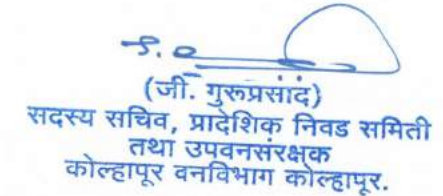 (जी. गुरूप्रसाद)
सदस्य सचिव, प्रादेशिक निवड समिती
तथा उपवनसंरक्षक
कोल्हापूर वनविभाग कोल्हापूर.